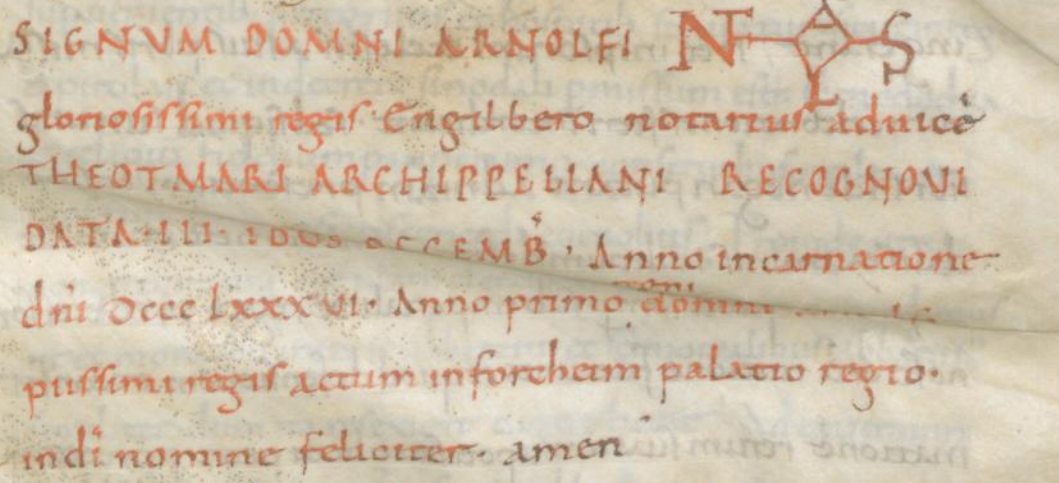 SIGNVM DOMNI ARNOLFI
gloriosissimi regis Engilbero notarius aduice
THEOTMARI ARCHIPPELLANI RECOGNOVI
DATA · III · IDUS DECEMB · Anno incarnatione
dni Dccc lxxx VI · Anno primo domni
piissimi regis actum inforcheim palatio regio ·
indi nomine feliciter · amen